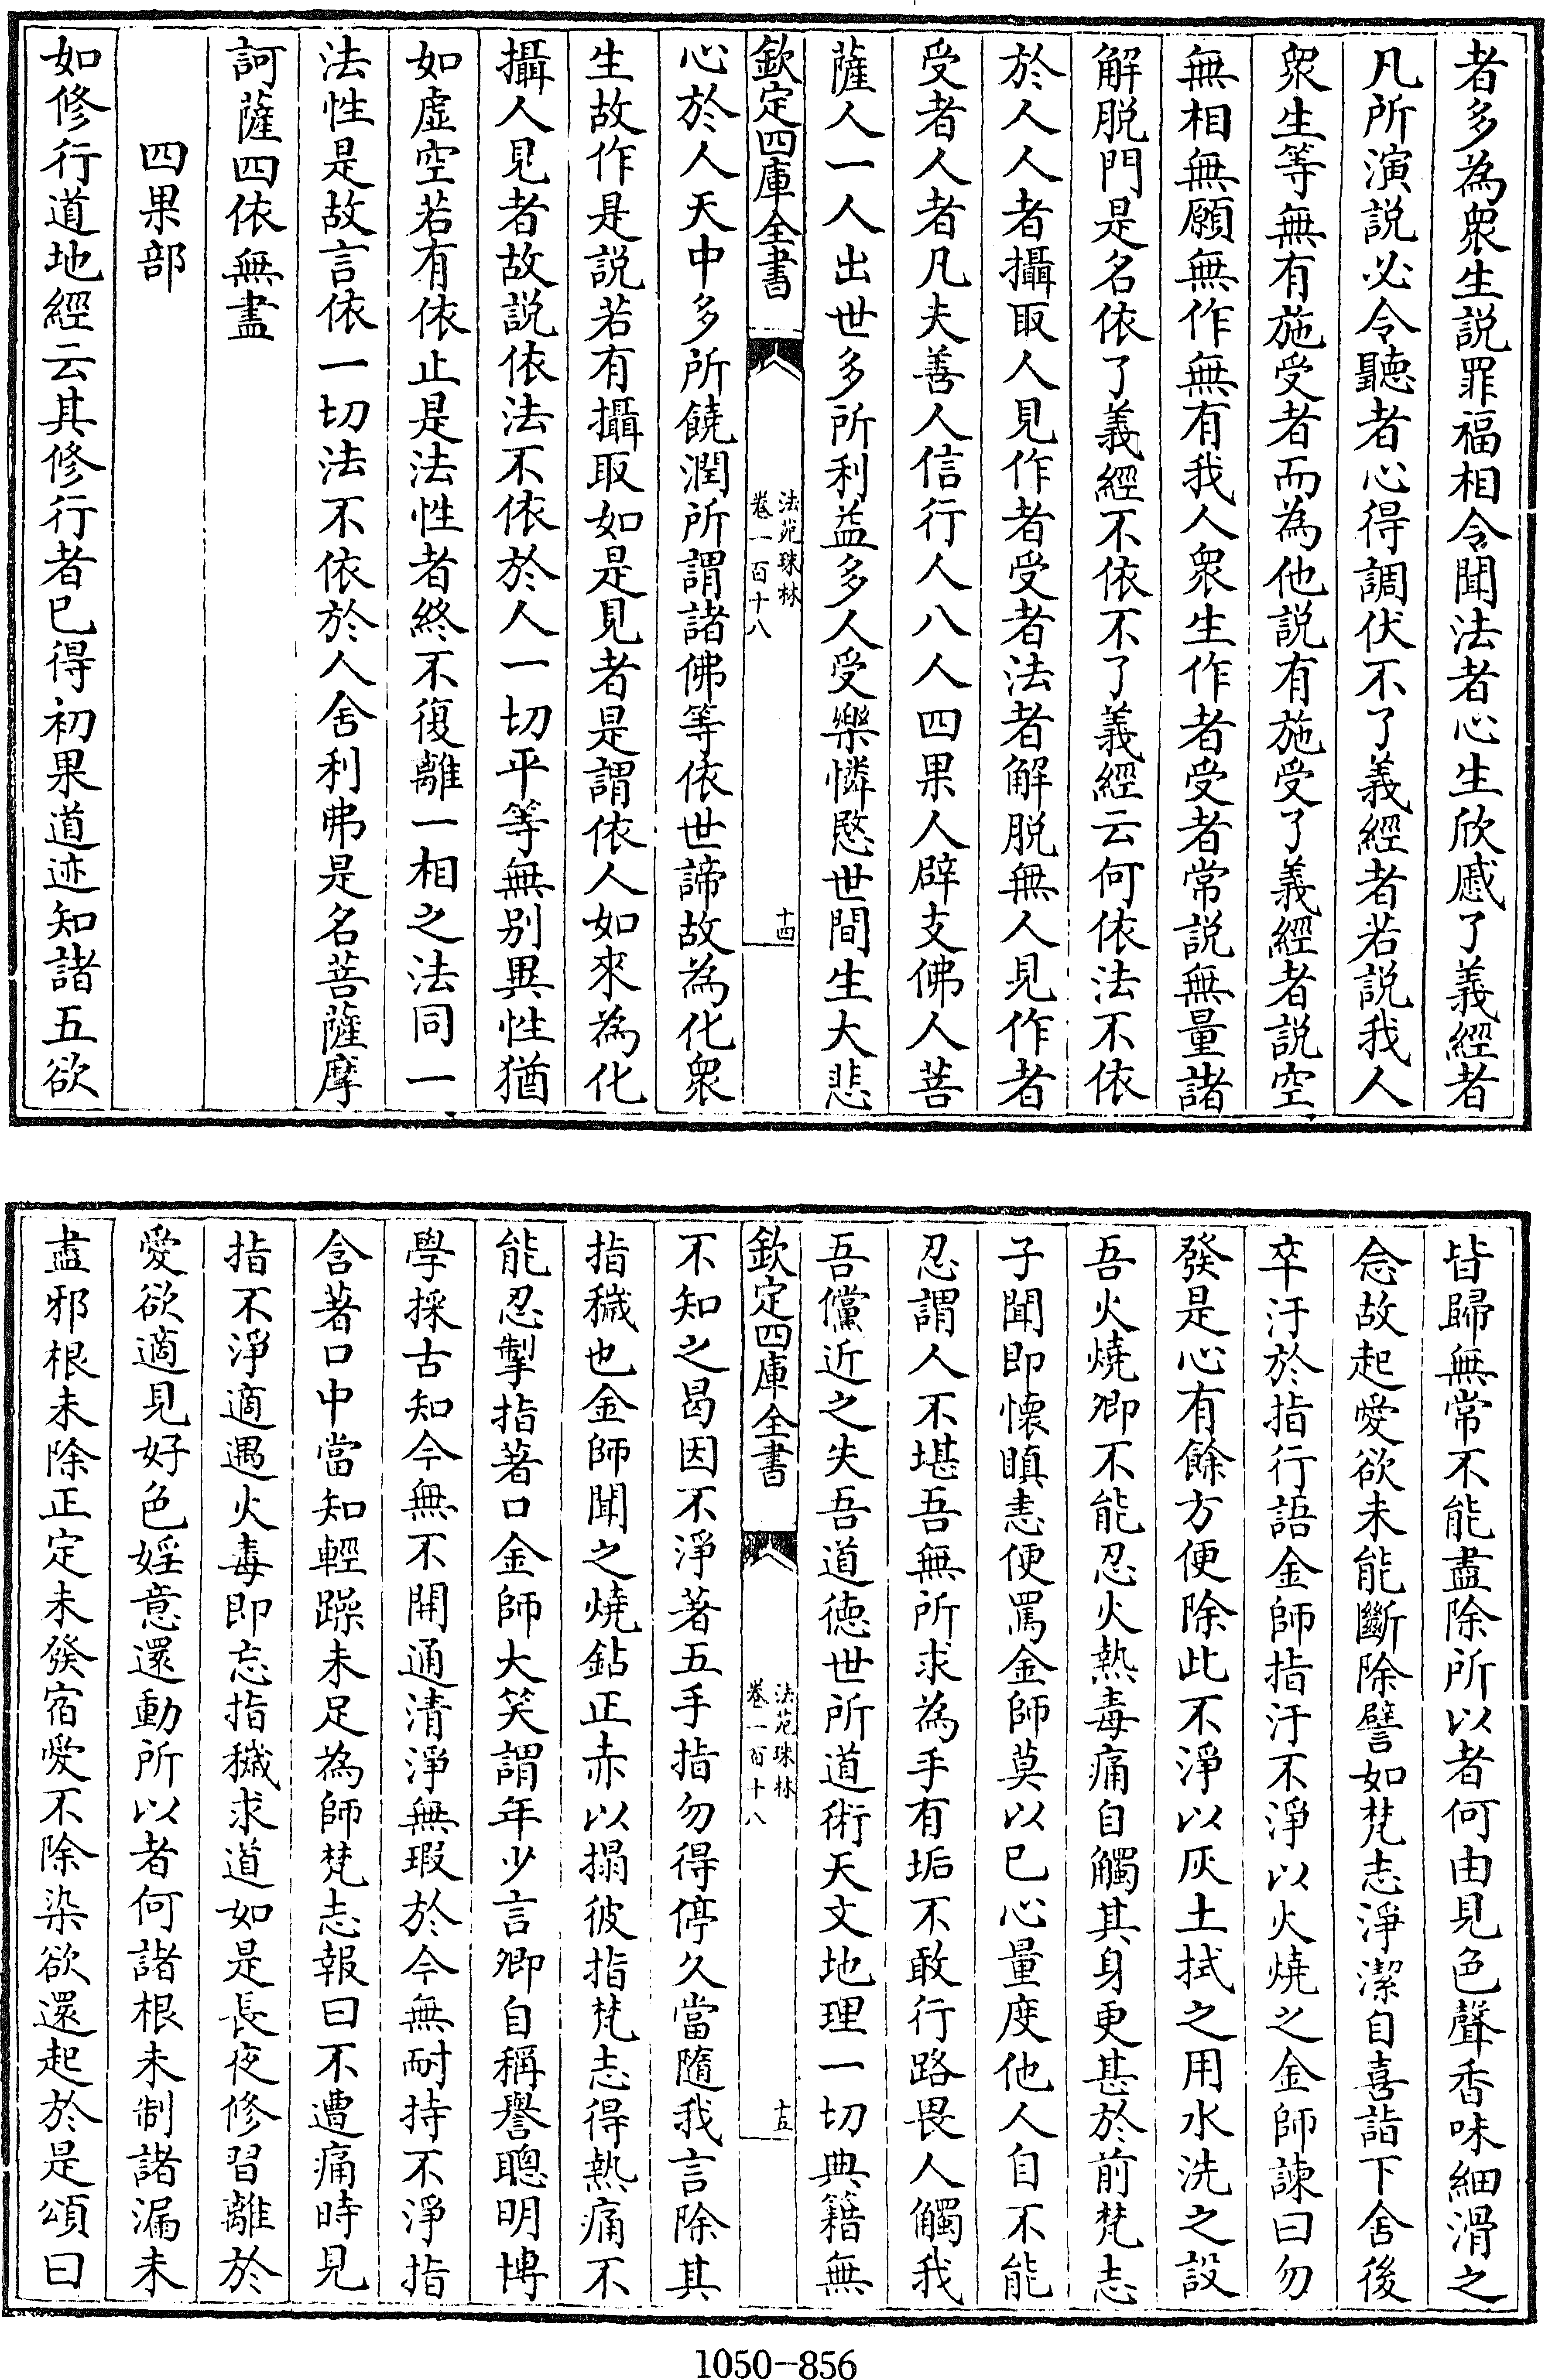 者多為衆生説罪福相令聞法者心生欣慼了義經者
凡所演説必令聽者心得調伏不了義經者若説我人
衆生等無有施受者而為他説有施受了義經者説空
無相無願無作無有我人衆生作者受者常説無量諸
解脱門是名依了義經不依不了義經云何依法不依
於人人者攝取人見作者受者法者解脱無人見作者
受者人者凡夫善人信行人八人四果人辟支佛人菩
薩人一人出世多所利益多人受樂憐愍世間生大悲
欽定四庫全書
法苑珠林
卷一百十八
十四
心於人天中多所饒潤所謂諸佛等依世諦故為化衆
生故作是説若有攝取如是見者是謂依人如來為化
攝人見者故説依法不依於人一切平等無别異性猶
如虚空若有依止是法性者終不復離一相之法同一
法性是故言依一切法不依於人舍利弗是名菩薩摩
訶薩四依無盡
四果部
如修行道地經云其修行者已得初果道迹知諸五欲
皆歸無常不能盡除所以者何由見色聲香味細滑之
念故起愛欲未能斷除譬如梵志淨潔自喜詣下舍後
卒汙於指行語金師指汙不淨以火燒之金師諫曰勿
發是心有餘方便除此不淨以灰土拭之用水洗之設
吾火燒卿不能忍火熱毒痛自觸其身更甚於前梵志
子聞即懐瞋恚便罵金師莫以已心量度他人自不能
忍謂人不堪吾無所求為手有垢不敢行路畏人觸我
吾儻近之失吾道徳世所道術天文地理一切典籍無
欽定四庫全書
法苑珠林
卷一百十八
十五
不知之曷因不淨著五手指勿得停久當隨我言除其
指穢也金師聞之燒鉆正赤以搨彼指梵志得熱痛不
能忍掣指著口金師大笑謂年少言卿自稱譽聰明博
學採古知今無不開通清淨無瑕於今無耐持不淨指
含著口中當知輕躁未足為師梵志報曰不遭痛時見
指不淨適遇火毒即忘指穢求道如是長夜修習離於
愛欲適見好色婬意還動所以者何諸根未制諸漏未
盡邪根未除正定未發宿愛不除染欲還起於是頌曰
1050-856